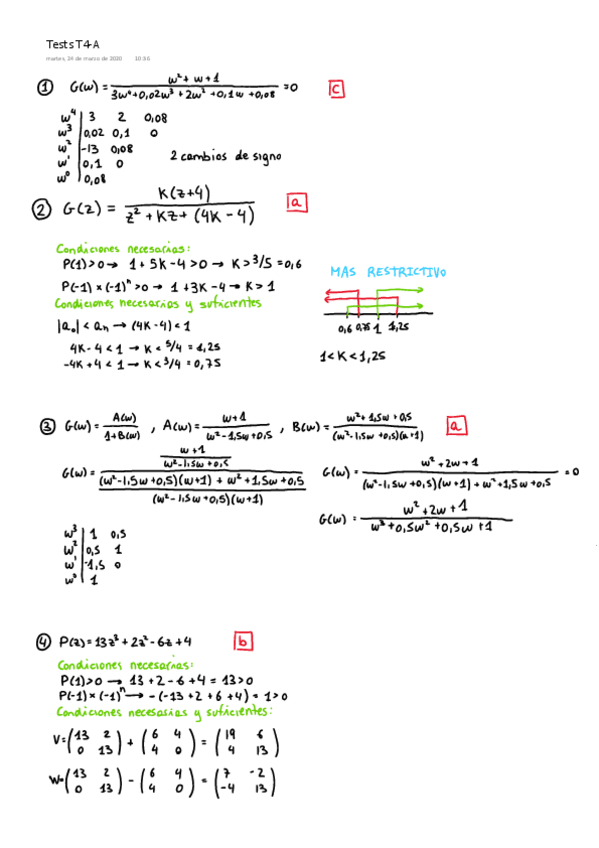 Tests T4-A
martes, 24 de marzo de 2020 10:36
① G(w) = (w² + w + 1) / (3w⁴ + 0,02w³ + 2w² + 0,1w + 0,08) = 0 [C]
w⁴ | 3 2 0,08
w³ | 0,02 0,1 0
w² | -13 0,08
w¹ | 0,1 0
w⁰ | 0,08
2 cambios de signo
② G(z) = K(z+4) / (z² + Kz + (4K - 4)) [a]
Condiciones necesarias:
P(1) > 0 → 1 + 5K - 4 > 0 → K > 3/5 = 0,6
P(-1) × (-1)ⁿ > 0 → 1 + 3K - 4 → K > 1
Condiciones necesarias y suficientes
|a₀| < aₙ → (4K - 4) < 1
4K - 4 < 1 → K < 5/4 = 1,25
-4K + 4 < 1 → K < 3/4 = 0,75
MAS RESTRICTIVO
0,6 0,75 1 1,25
1 < K < 1,25
③ G(w) = A(w) / (1 + B(w)) , A(w) = (w+1) / (w² - 1,5w + 0,5) , B(w) = (w² + 1,5w + 0,5) / ((w² - 1,5w + 0,5)(w+1)) [a]
G(w) = ((w+1) / (w² - 1,5w + 0,5)) / (((w² - 1,5w + 0,5)(w+1) + w² + 1,5w + 0,5) / ((w² - 1,5w + 0,5)(w+1)))
G(w) = (w² + 2w + 1) / ((w² - 1,5w + 0,5)(w+1) + w² + 1,5w + 0,5) = 0
G(w) = (w² + 2w + 1) / (w³ + 0,5w² + 0,5w + 1)
w³ | 1 0,5
w² | 0,5 1
w¹ | -1,5 0
w⁰ | 1
④ P(z) = 13z³ + 2z² - 6z + 4 [b]
Condiciones necesarias:
P(1) > 0 → 13 + 2 - 6 + 4 = 13 > 0
P(-1) × (-1)ⁿ → -(-13 + 2 + 6 + 4) = 1 > 0
Condiciones necesarias y suficientes:
V = (13 2; 0 13) + (6 4; 4 0) = (19 6; 4 13)
W = (13 2; 0 13) - (6 4; 4 0) = (7 -2; -4 13)